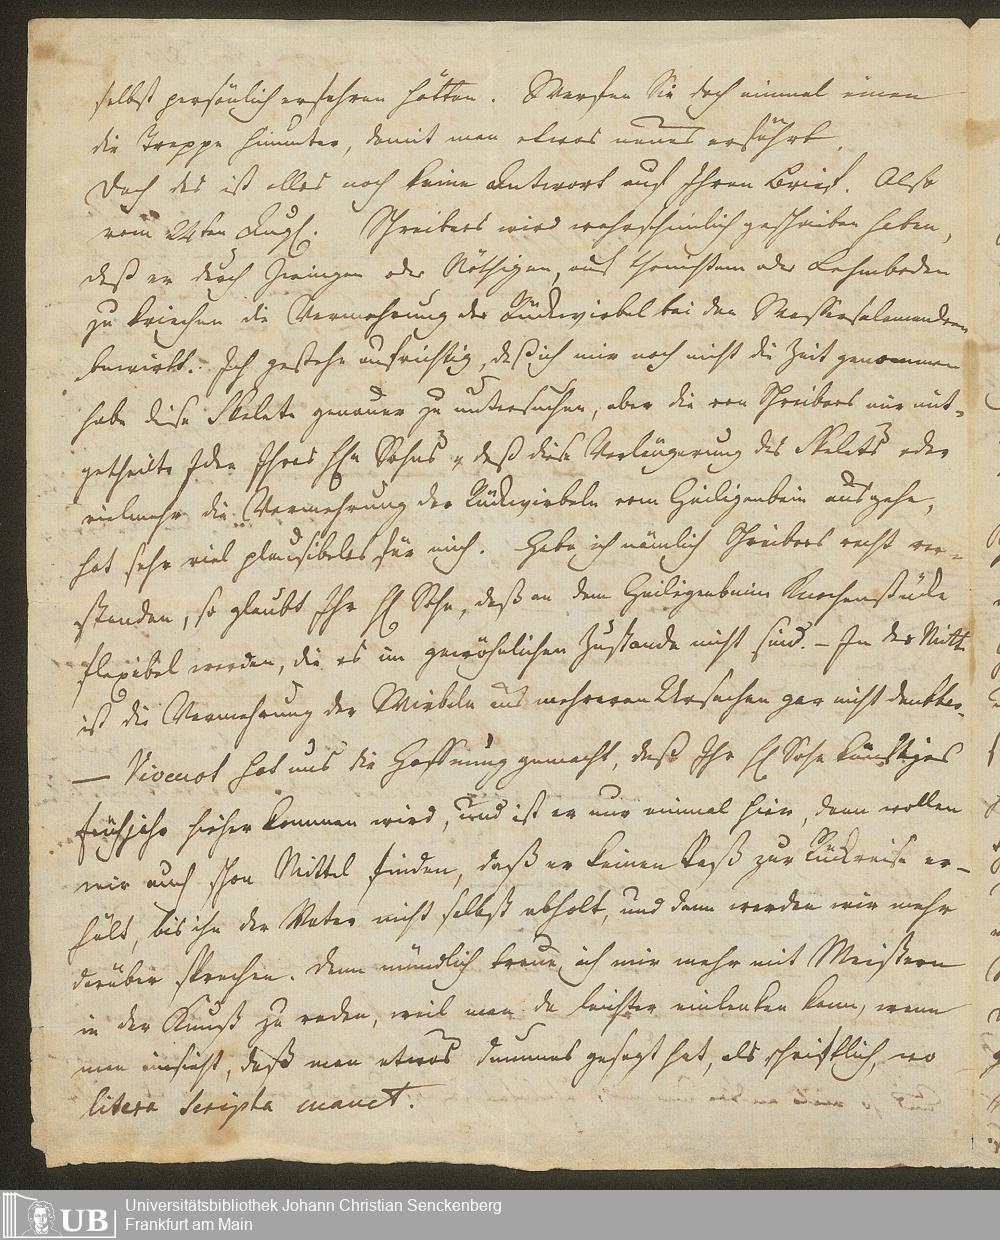 selbst persönlich erfahren hätten. Werfen Sie doch einmal einen
die Treppe hinunter, damit man etwas neues erfährt.
Doch das ist alles noch keine Antwort auf Ihren Brief. Also
vom 24ten Augs. Schreibers wird wahrscheinlich geschrieben haben,
daß er durch Zwingen oder Nöthigen, auf thonichtem oder Lehmboden
zu kriechen die Vermehrung der Rückwirbel bei den Wassersalamandern
bewirkt. Ich gestehe aufrichtig, daß ich mir noch nicht die Zeit genommen
habe diese Skelete genauer zu untersuchen, aber die von Schreibers mir mit-
getheilte Idee Ihres Hn Sohns, daß diese Verlängerung des Skelets oder
vielmehr die Vermehrung der Rückwirbeln vom Heiligenbein ausgehe,
hat sehr viel plausibeles für mich. Habe ich nämlich Schreibers recht ver-
standen, so glaubt Ihr H Sohn, daß an dem Heiligenbeine Knochenstücke
flexibel werden, die es im gewöhnlichen Zustande nicht sind. – In der Mitte
ist die Vermehrung der Wirbeln aus mehreren Ursachen gar nicht denkbar.
— Vivenot hat uns die Hoffnung gemacht, daß Ihr H Sohn künftiges
Frühjahr hieher kommen wird, und ist er nur einmal hier, dann wollen
wir auch schon Mittel finden, daß er keinen Paß zur Rückreise er-
hält, bis ihn der Vater nicht selbst abholt, und dann werden wir mehr
darüber sprechen. Denn mündlich traue ich mir mehr mit Meistern
in der Kunst zu reden, weil man da leichter einlenken kann, wenn
man einsieht, daß man etwas dummes gesagt hat, als schriftlich, wo
litera scripta manet.
UB
Universitätsbibliothek Johann Christian Senckenberg
Frankfurt am Main